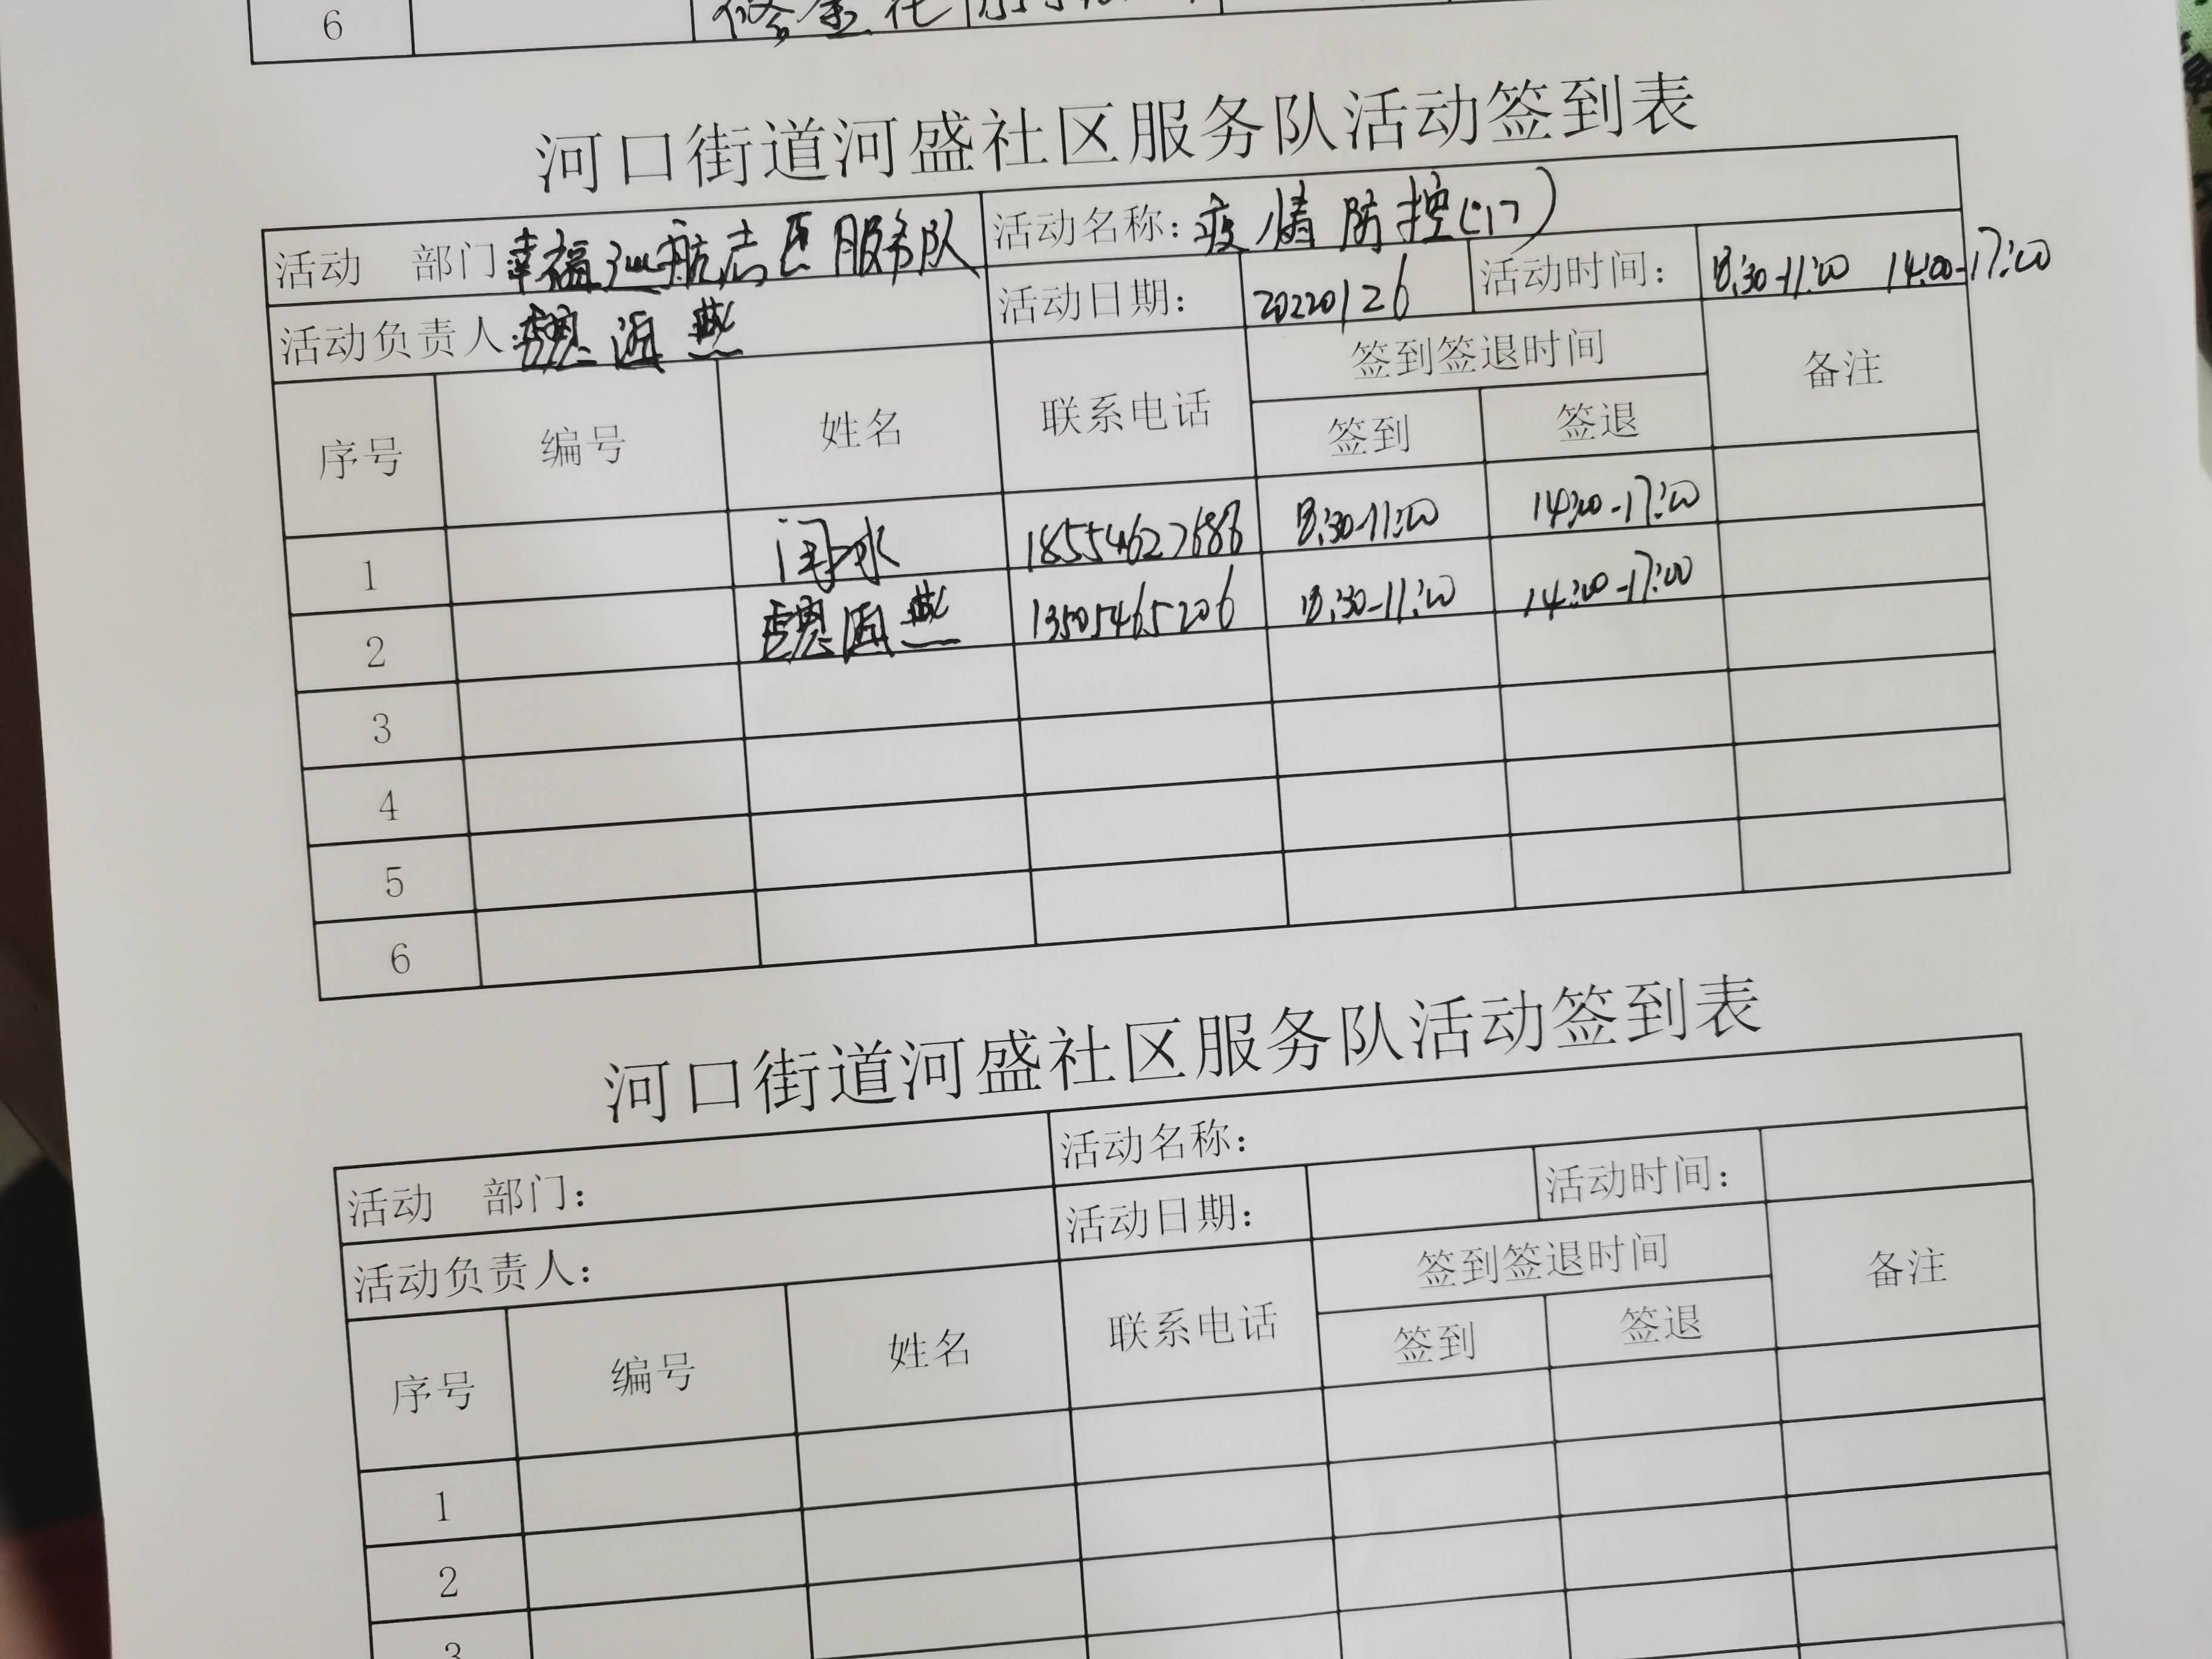 6 修金花
河口街道河盛社区服务队活动签到表
活动 部门 幸福巡航志愿服务队 活动名称：疫情防控(门)
活动负责人：魏洄燕 活动日期： 20220126 活动时间： 8:30-11:00 14:00-17:00
签到签退时间
序号 编号 姓名 联系电话 签到 签退 备注
1 闫水 18554627686 8:30-11:00 14:00-17:00
2 魏洄燕 13505465206 8:30-11:00 14:00-17:00
3
4
5
6
河口街道河盛社区服务队活动签到表
活动 部门： 活动名称：
活动负责人： 活动日期： 活动时间：
签到签退时间
序号 编号 姓名 联系电话 签到 签退 备注
1
2
3